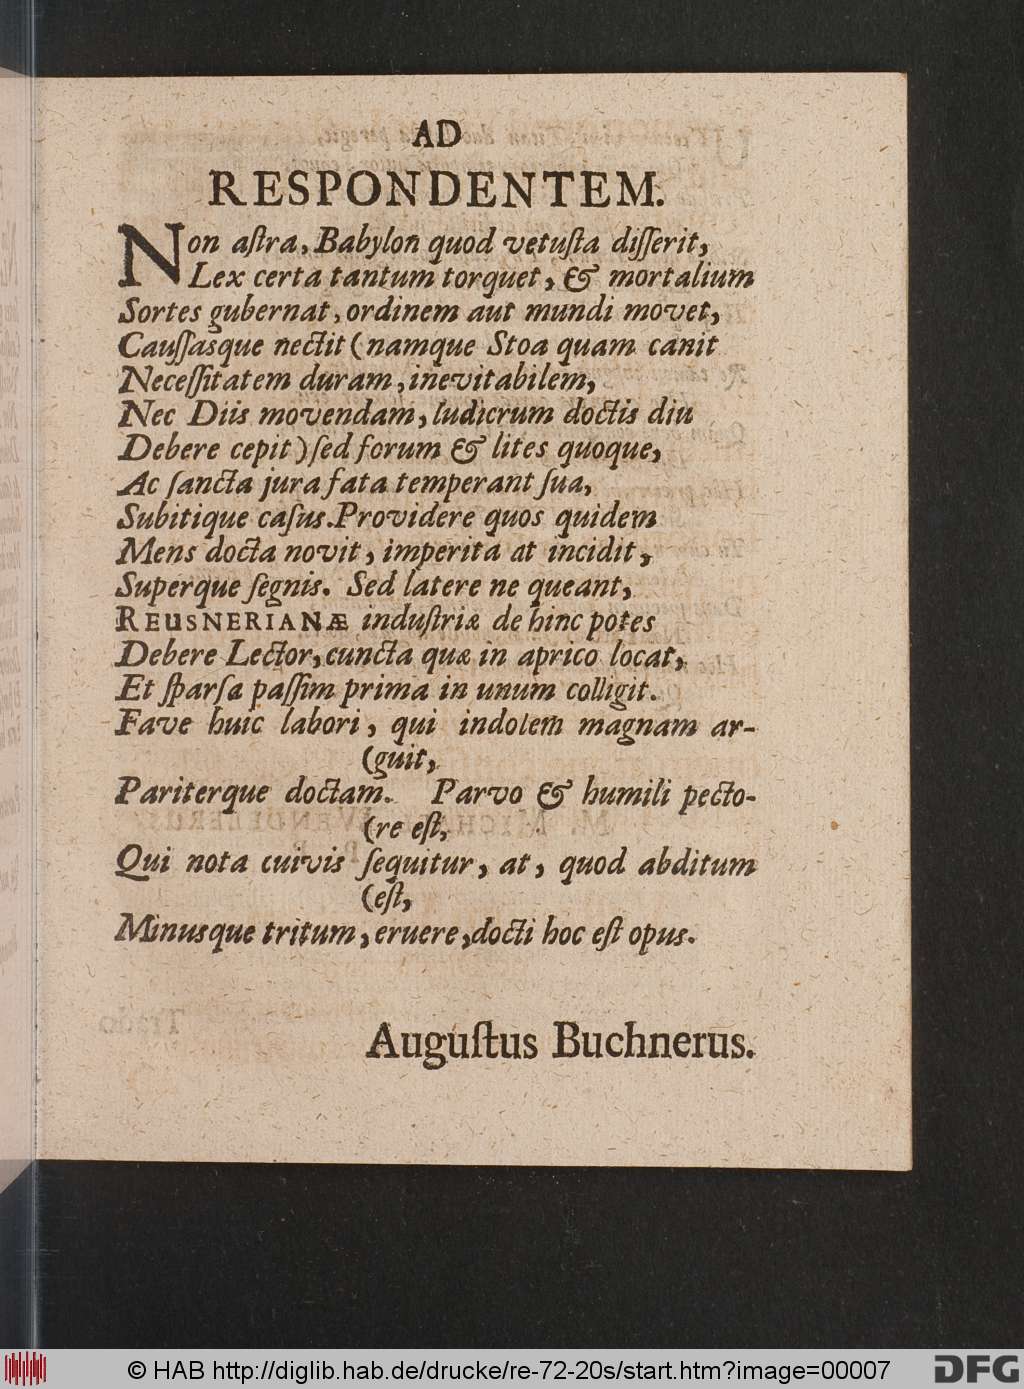 AD
RESPONDENTEM.
Non aſtra, Babylon quod vetuſta diſſerit,
Lex certa tantum torquet, & mortalium
Sortes gubernat, ordinem aut mundi movet,
Cauſſasque nectit (namque Stoa quam canit
Neceſſitatem duram, inevitabilem,
Nec Diis movendam, ludicrum doctis diu
Debere cepit) ſed forum & lites quoque,
Ac ſancta jura fata temperant ſua,
Subitique caſus. Providere quos quidem
Mens docta novit, imperita at incidit,
Superque ſegnis. Sed latere ne queant,
REUSNERIANÆ induſtriæ de hinc potes
Debere Lector, cuncta quæ in aprico locat,
Et ſparſa paſſim prima in unum colligit.
Fave huic labori, qui indolem magnam ar-
(guit,
Pariterque doctam. Parvo & humili pecto-
(re eſt,
Qui nota cuivis ſequitur, at, quod abditum
(eſt,
Minusque tritum, eruere, docti hoc eſt opus.
Auguſtus Buchnerus.
© HAB http://diglib.hab.de/drucke/re-72-20s/start.htm?image=00007
DFG